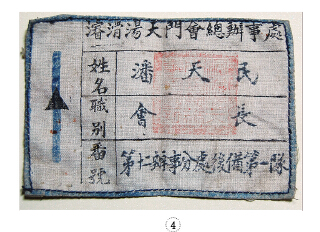 濬滑湯天門會總辦事處
姓名職別番號
潘天民
會長
第十二辦事分處後備第一隊
4